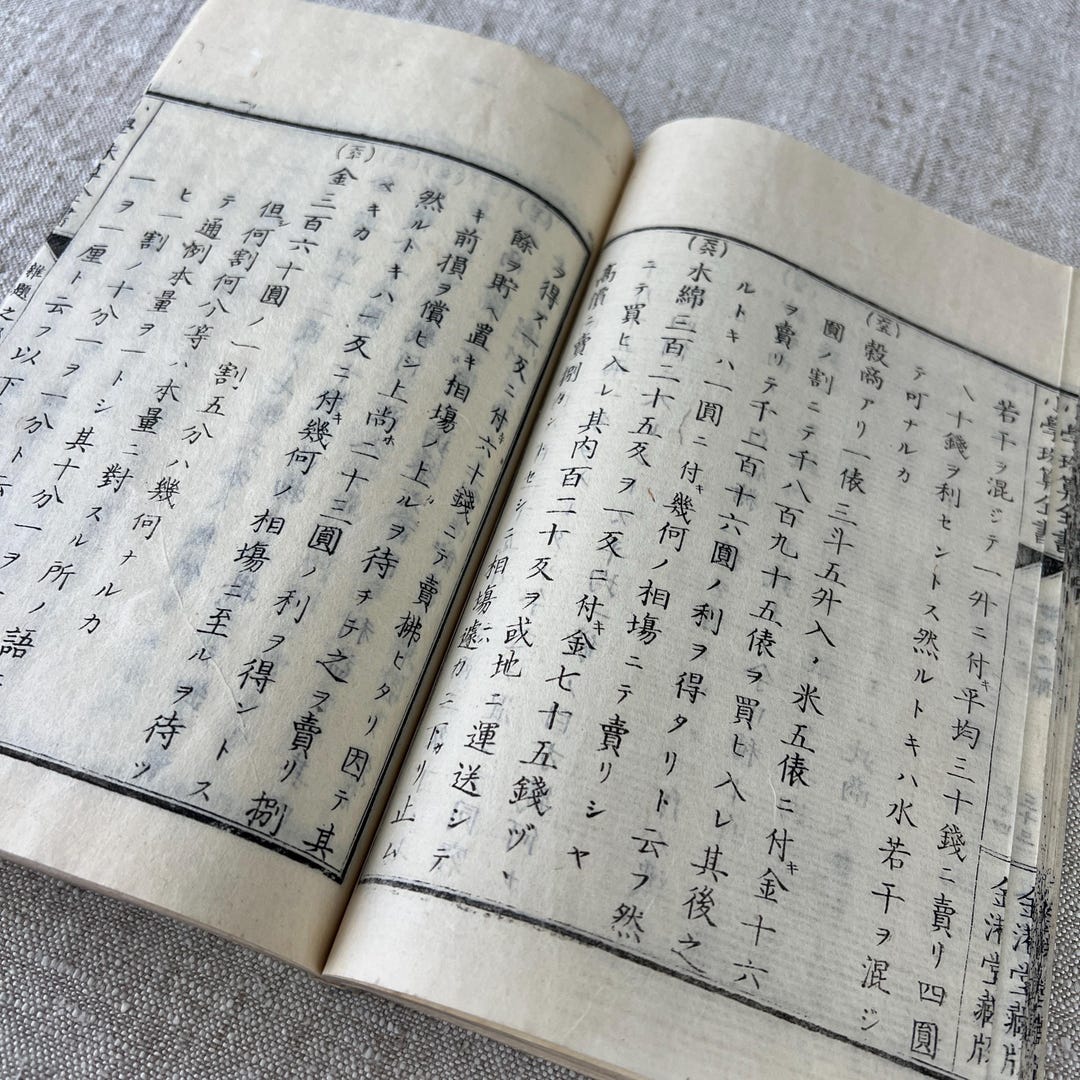 小學珠算全書
金港堂藏版
金港堂藏版
若干ヲ混ジテ一升ニ付キ平均三十錢ニ賣リ四圓
八十錢ヲ利セントス然ルトキハ水若干ヲ混ジ
テ可ナルカ
穀商アリ一俵三斗五升入ノ米五俵ニ付キ金十六
圓ノ割ニテ千八百九十五俵ヲ買ヒ入レ其後之
ヲ賣リテ千二百十六圓ノ利ヲ得タリト云フ然
ルトキハ一圓ニ付キ幾何ノ相場ニテ賣リシヤ
木綿三百二十五反ヲ一反ニ付キ金七十五錢ヅヽ
ニテ買ヒ入レ其内百二十反ヲ或地ニ運送シテ
高價ニ賣捌カントセシニ相塲遽カニ下リ止ム
ヲ得ズ一反ニ付キ六十錢ニテ賣拂ヒタリ因テ其
餘ヲ貯ヘ置キ相塲ノ上ルヲ待チテ之ヲ賣リ捌
キ前損ヲ償ヒシ上尚ホ二十三圓ノ利ヲ得ントス
然ルトキハ一反ニ付キ幾何ノ相塲ニ至ルヲ待ツ
ベキカ
金三百六十圓ノ一割五分ハ幾何ナルカ
但シ何割何分等ハ本量ニ對スル所ノ語ニ
テ通例本量ヲ一トシ其十分一ヲ
ヒ一割ノ十分一ヲ一分ト云ヒ
一ヲ一厘ト云フ以下
雑題之